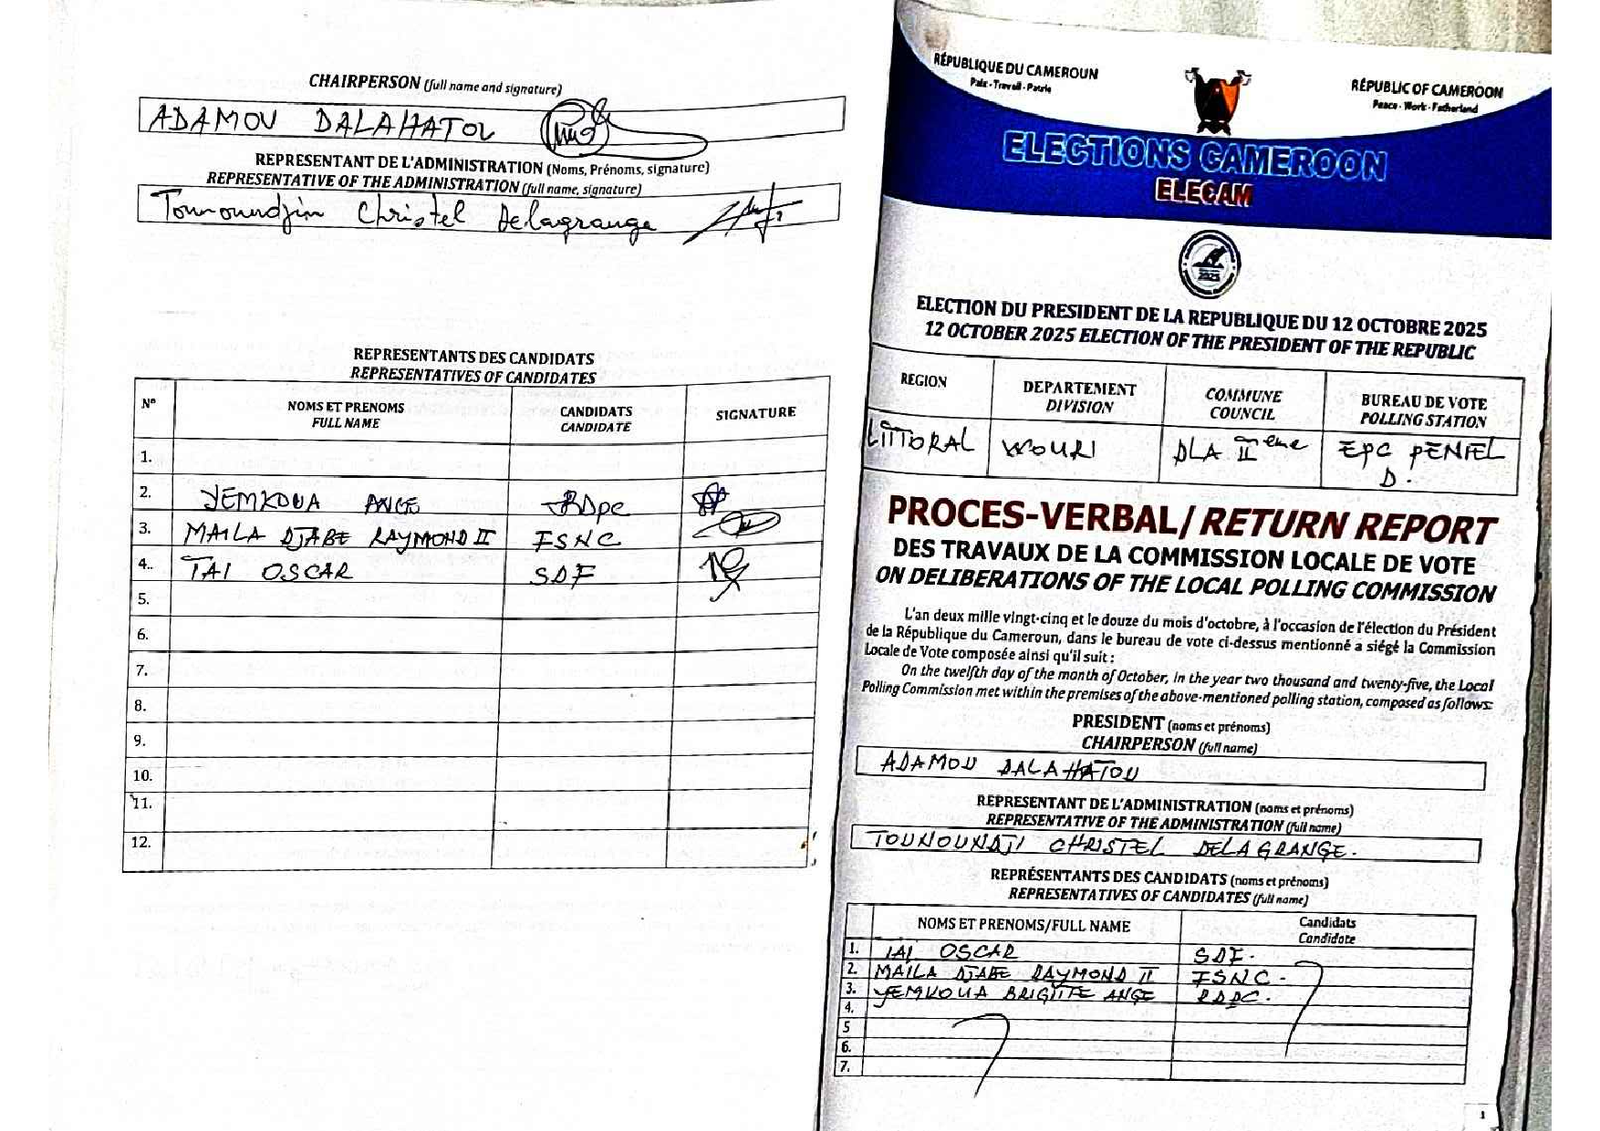 CHAIRPERSON (full name and signature)
ADAMOU DALAHATOU
REPRESENTANT DE L'ADMINISTRATION (Noms, Prénoms, signature)
REPRESENTATIVE OF THE ADMINISTRATION (full name, signature)
Christel Delagrange
REPRESENTANTS DES CANDIDATS
REPRESENTATIVES OF CANDIDATES
N° NOMS ET PRENOMS CANDIDATS SIGNATURE
FULL NAME CANDIDATE
1.
2. YEMKOUA ANGE RDPC
3. MAILA DJABE RAYMOND II FSNC
4.. TAI OSCAR SDF
5.
6.
7.
8.
9.
10.
11.
12.
RÉPUBLIQUE DU CAMEROUN
Paix - Travail - Patrie
RÉPUBLIC OF CAMEROON
Peace - Work - Fatherland
ELECTIONS CAMEROON
ELECAM
2025
ELECTION DU PRESIDENT DE LA REPUBLIQUE DU 12 OCTOBRE 2025
12 OCTOBER 2025 ELECTION OF THE PRESIDENT OF THE REPUBLIC
REGION DEPARTEMENT COMMUNE BUREAU DE VOTE
DIVISION COUNCIL POLLING STATION
LITTORAL WOURI DLA IIème EPC PENIEL
D.
PROCES-VERBAL/ RETURN REPORT
DES TRAVAUX DE LA COMMISSION LOCALE DE VOTE
ON DELIBERATIONS OF THE LOCAL POLLING COMMISSION
L'an deux mille vingt-cinq et le douze du mois d'octobre, à l'occasion de l'élection du Président
de la République du Cameroun, dans le bureau de vote ci-dessus mentionné a siégé la Commission
Locale de Vote composée ainsi qu'il suit :
On the twelfth day of the month of October, in the year two thousand and twenty-five, the Local
Polling Commission met within the premises of the above-mentioned polling station, composed as follows:
PRESIDENT (noms et prénoms)
CHAIRPERSON (full name)
ADAMOU DALAHATOU
REPRESENTANT DE L'ADMINISTRATION (noms et prénoms)
REPRESENTATIVE OF THE ADMINISTRATION (full name)
CHRISTEL DELAGRANGE.
REPRÉSENTANTS DES CANDIDATS (noms et prénoms)
REPRESENTATIVES OF CANDIDATES (full name)
NOMS ET PRENOMS/FULL NAME Candidats
Candidate
1. TAI OSCAR SDF.
2. MAILA DJABE RAYMOND II FSNC.
3. YEMKOUA BRIGITTE ANGE RDPC.
4.
5
6.
7.
1